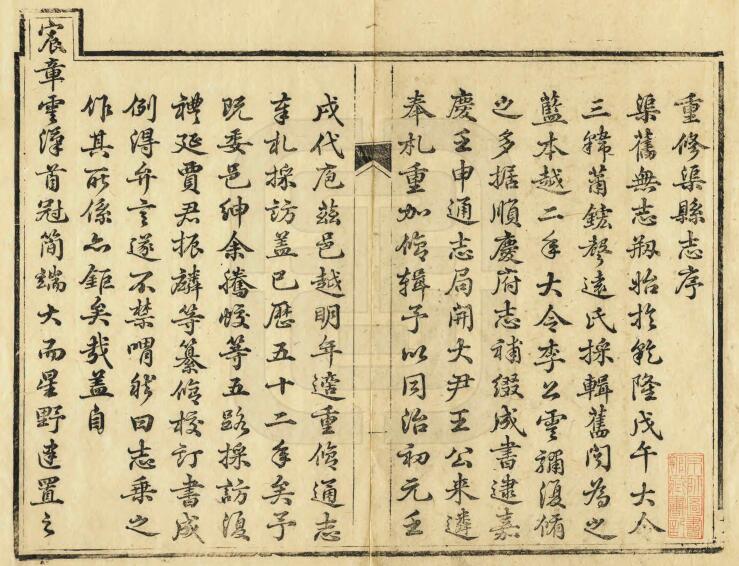 重修渠縣志序
渠舊無志剏始於乾隆戊午大令
三韓蕭鋐聲遠氏採輯舊聞為之
藍本越二年大令李公雲彌復脩
之多据順慶府志補綴成書逮嘉
慶壬申通志局開大尹王公来遴
奉札重加脩輯予以同治初元壬
戌代庖茲邑越明年適重脩通志
奉札採訪盖已歷五十二年矣予
既委邑紳余騰蛟等五路採訪復
禮延賈君振麟等纂脩校訂書成
例得弁言遂不禁喟然曰志乘之
作其所係亦鉅矣哉盖自
宸章雲漢首冠簡端大而星野建置之